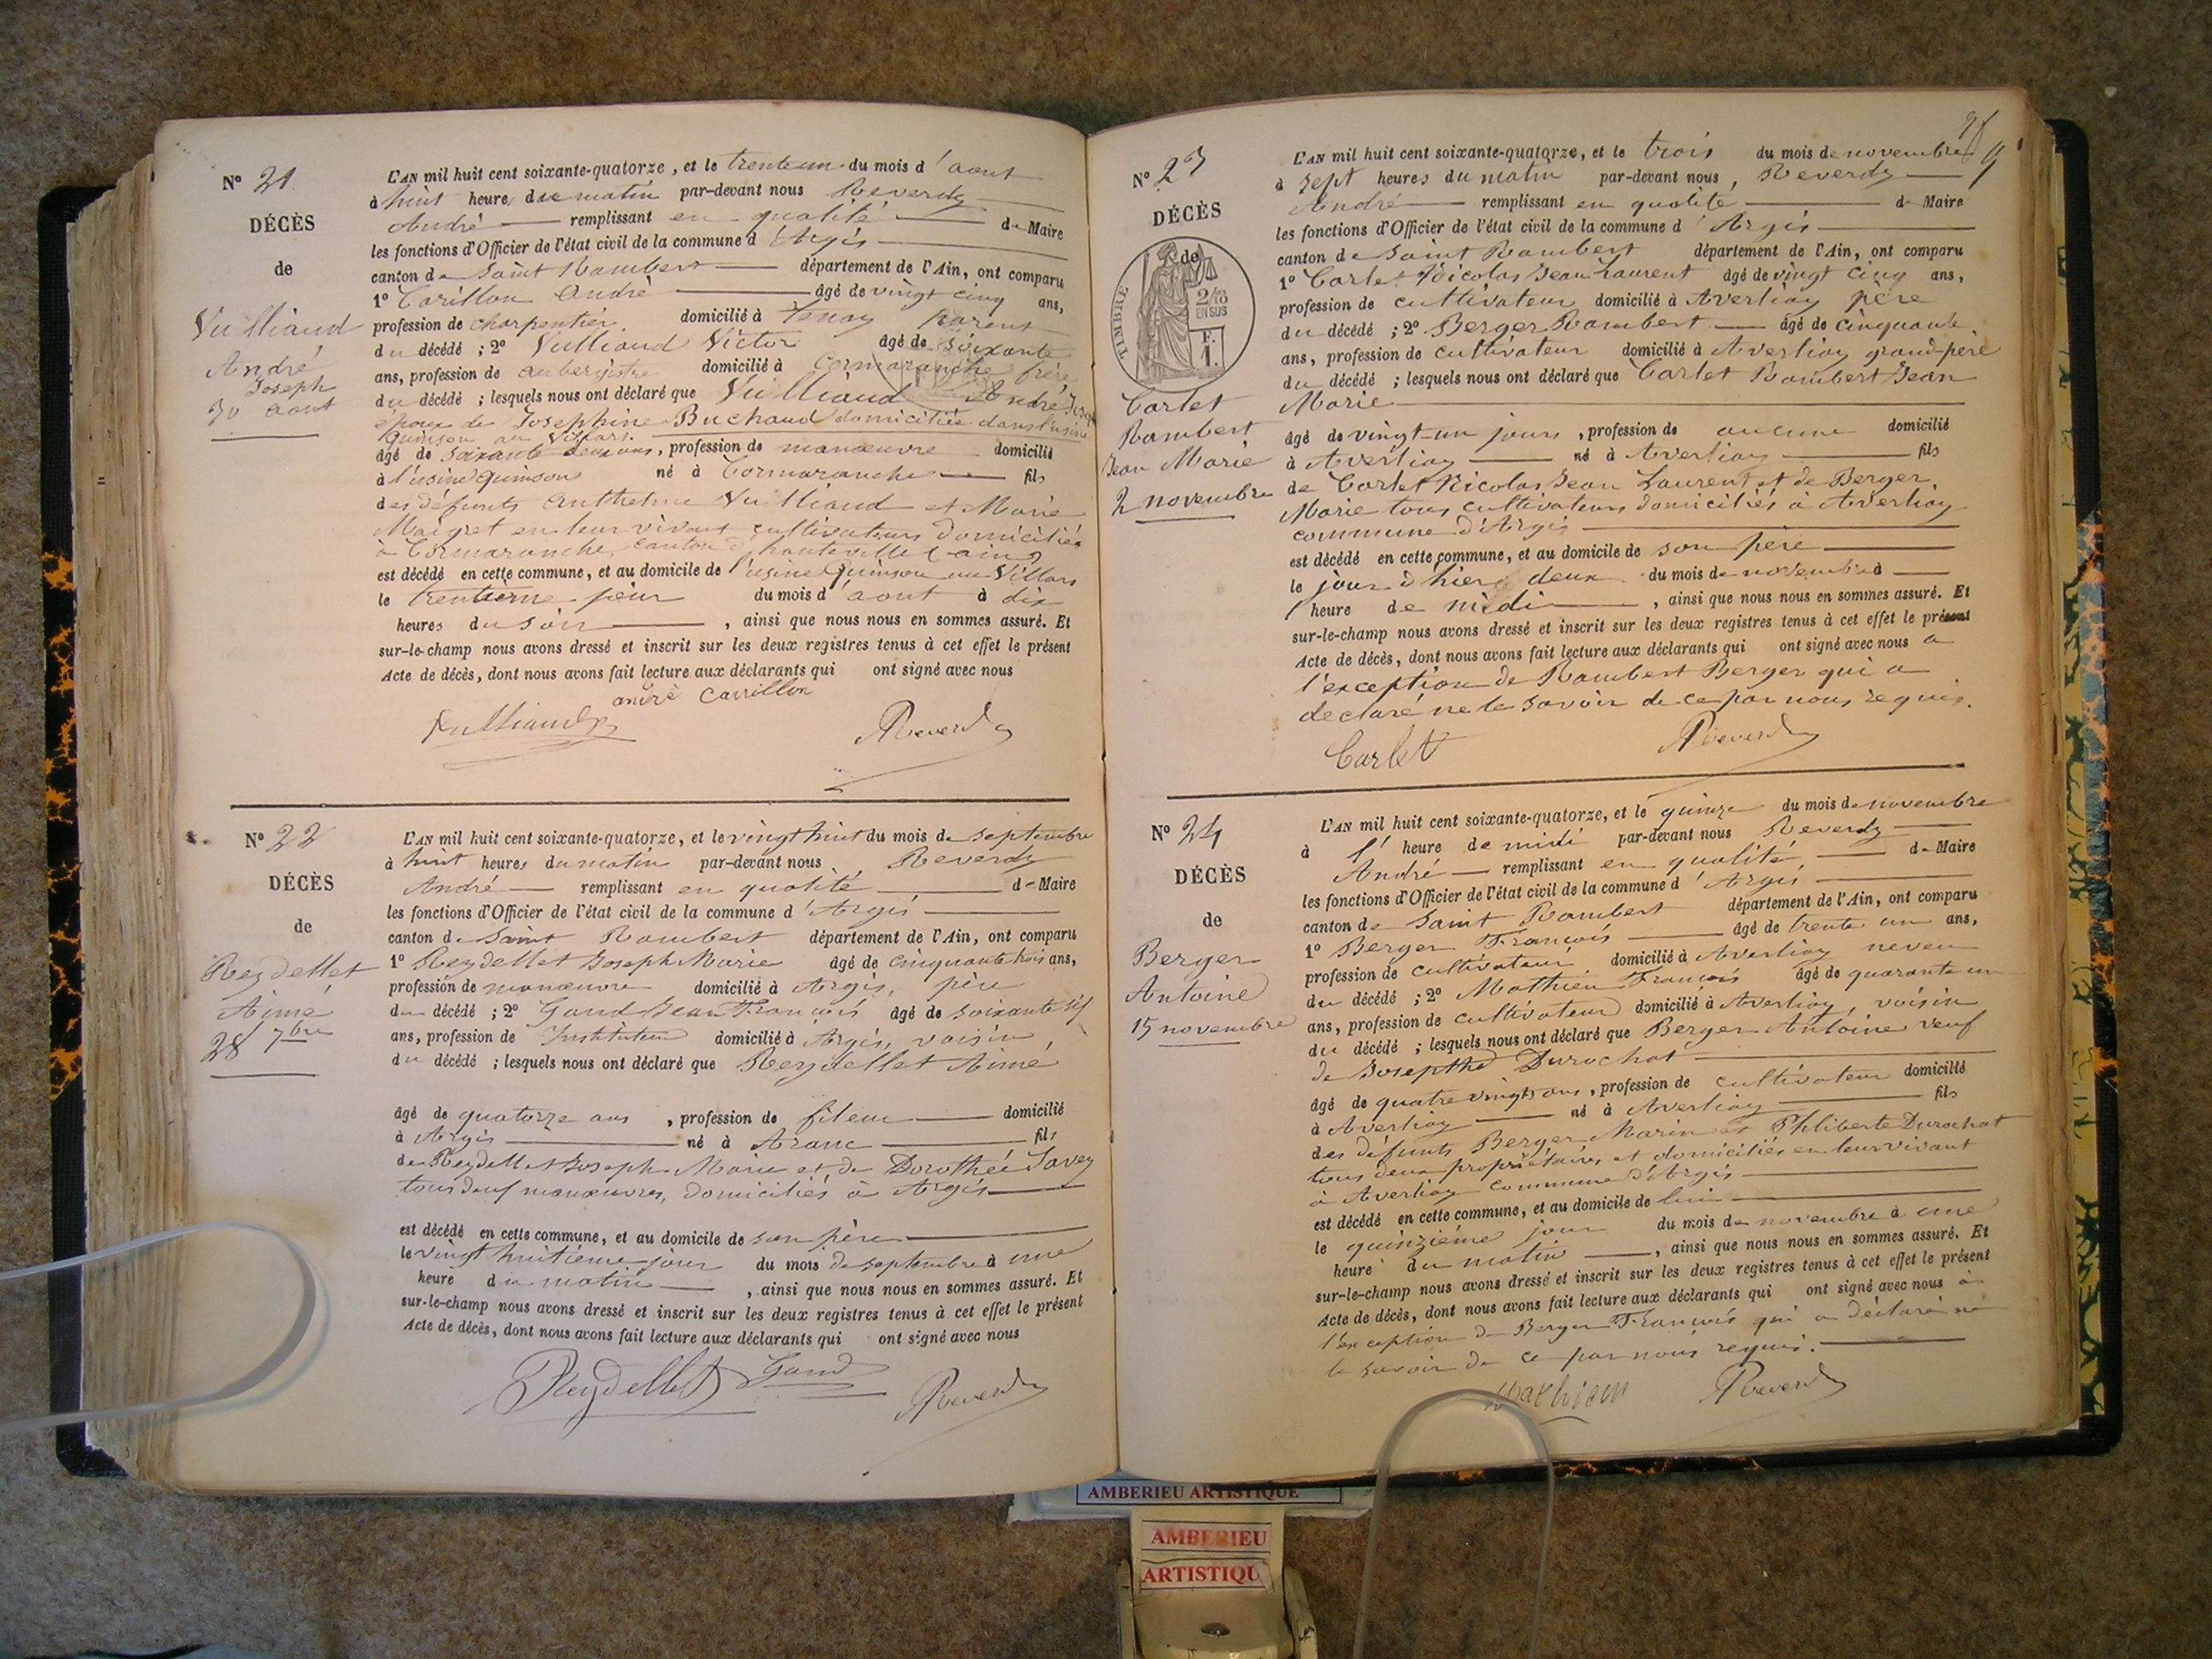 N° 21
DÉCÈS
de
Vuilliaud
André
Joseph
30 aout
L'AN mil huit cent soixante-quatorze, et le trente un du mois d'aout
à huit heures du matin par-devant nous Reverdy
André remplissant en qualité de Maire
les fonctions d'Officier de l'état civil de la commune d'Argis
canton de Saint Rambert département de l'Ain, ont comparu
1° Carillon André âgé de vingt cinq ans,
profession de charpentier domicilié à Tenay parent
du décédé ; 2° Vuilliaud Victor âgé de soixante
ans, profession de aubergiste domicilié à Cormaranche frère
du décédé ; lesquels nous ont déclaré que Vuilliaud André Joseph
époux de Josephine Buchaud domiciliée dans l'usine
Quinson au Villars.
âgé de soixante deux ans, profession de manœuvre domicilié
à l'usine Quinson né à Cormaranche fils
des défunts Anthelme Vuilliaud et Marie
Maigret en leur vivant cultivateurs domiciliés
à Cormaranche, canton d'hauteville (ain)
est décédé en cette commune, et au domicile de l'usine Quinson au Villars
le trentième jour du mois d'aout à dix
heures du soir, ainsi que nous nous en sommes assuré. Et
sur-le-champ nous avons dressé et inscrit sur les deux registres tenus à cet effet le présent
Acte de décès, dont nous avons fait lecture aux déclarants qui ont signé avec nous
andré Carrillon
Vuilliaud Reverdy
N° 22
DÉCÈS
de
Reydellet
Aimé
28 7bre
L'AN mil huit cent soixante-quatorze, et le vingt huit du mois de septembre
à huit heures du matin par-devant nous Reverdy
André remplissant en qualité de Maire
les fonctions d'Officier de l'état civil de la commune d'Argis
canton de Saint Rambert département de l'Ain, ont comparu
1° Reydellet Joseph Marie âgé de cinquante trois ans,
profession de manœuvre domicilié à Argis, père
du décédé ; 2° Gand Jean François âgé de soixante
ans, profession de Instituteur domicilié à Argis, voisin
du décédé ; lesquels nous ont déclaré que Reydellet Aimé
âgé de quatorze ans, profession de fileur domicilié
à Argis né à Aranc fils
de Reydellet Joseph Marie et de Dorothée Savey
tous deux manœuvres, domiciliés à Argis
est décédé en cette commune, et au domicile de son père
le vingt huitième jour du mois de septembre à une
heure du matin, ainsi que nous nous en sommes assuré. Et
sur-le-champ nous avons dressé et inscrit sur les deux registres tenus à cet effet le présent
Acte de décès, dont nous avons fait lecture aux déclarants qui ont signé avec nous
Reydellet Gand Reverdy
N° 23
DÉCÈS
de
TIMBRE
2/10
EN SUS
F.
1.
Carlet
Rambert
Jean Marie
2 novembre
9
L'AN mil huit cent soixante-quatorze, et le trois du mois de novembre
à sept heures du matin par-devant nous, Reverdy
André remplissant en qualité de Maire
les fonctions d'Officier de l'état civil de la commune d'Argis
canton de Saint Rambert département de l'Ain, ont comparu
1° Carlet Nicolas Jean Laurent âgé de vingt cinq ans,
profession de cultivateur domicilié à Averliaz père
du décédé ; 2° Berger Rambert âgé de cinquante
ans, profession de cultivateur domicilié à Averliaz grand-père
du décédé ; lesquels nous ont déclaré que Carlet Rambert Jean
Marie
âgé de vingt-un jours, profession de aucune domicilié
à Averliaz né à Averliaz fils
de Carlet Nicolas Jean Laurent et de Berger
Marie tous cultivateurs domiciliés à Averliaz
commune d'Argis
est décédé en cette commune, et au domicile de son père
le jour d'hier deux du mois de novembre à
l'heure de midi, ainsi que nous nous en sommes assuré. Et
sur-le-champ nous avons dressé et inscrit sur les deux registres tenus à cet effet le présent
Acte de décès, dont nous avons fait lecture aux déclarants qui ont signé avec nous a
l'exception de Rambert Berger qui a
declaré ne le savoir de ce par nous requis.
Carlet Reverdy
N° 24
DÉCÈS
de
Berger
Antoine
15 novembre
L'AN mil huit cent soixante-quatorze, et le quinze du mois de novembre
à l'heure de midi par-devant nous Reverdy
André remplissant en qualité de Maire
les fonctions d'Officier de l'état civil de la commune d'Argis
canton de Saint Rambert département de l'Ain, ont comparu
1° Berger François âgé de trente un ans,
profession de cultivateur domicilié à Averliaz neveu
du décédé ; 2° Mathieu François âgé de quarante un
ans, profession de cultivateur domicilié à Averliaz, voisin
du décédé ; lesquels nous ont déclaré que Berger Antoine veuf
de Josepthe Durochat
âgé de quatre vingts ans, profession de cultivateur domicilié
à Averliaz né à Averliaz fils
des défunts Berger Marin et Philiberte Durochat
tous deux propriétaires et domiciliés en leur vivant
à Averliaz commune d'Argis
est décédé en cette commune, et au domicile de lui
le quinzième jour du mois de novembre à une
heure du matin, ainsi que nous nous en sommes assuré. Et
sur-le-champ nous avons dressé et inscrit sur les deux registres tenus à cet effet le présent
Acte de décès, dont nous avons fait lecture aux déclarants qui ont signé avec nous à
l'exception de Berger François qui a déclaré ne
le savoir de ce par nous requis.
Mathieu Reverdy
AMBERIEU ARTISTIQUE
AMBERIEU
ARTISTIQU